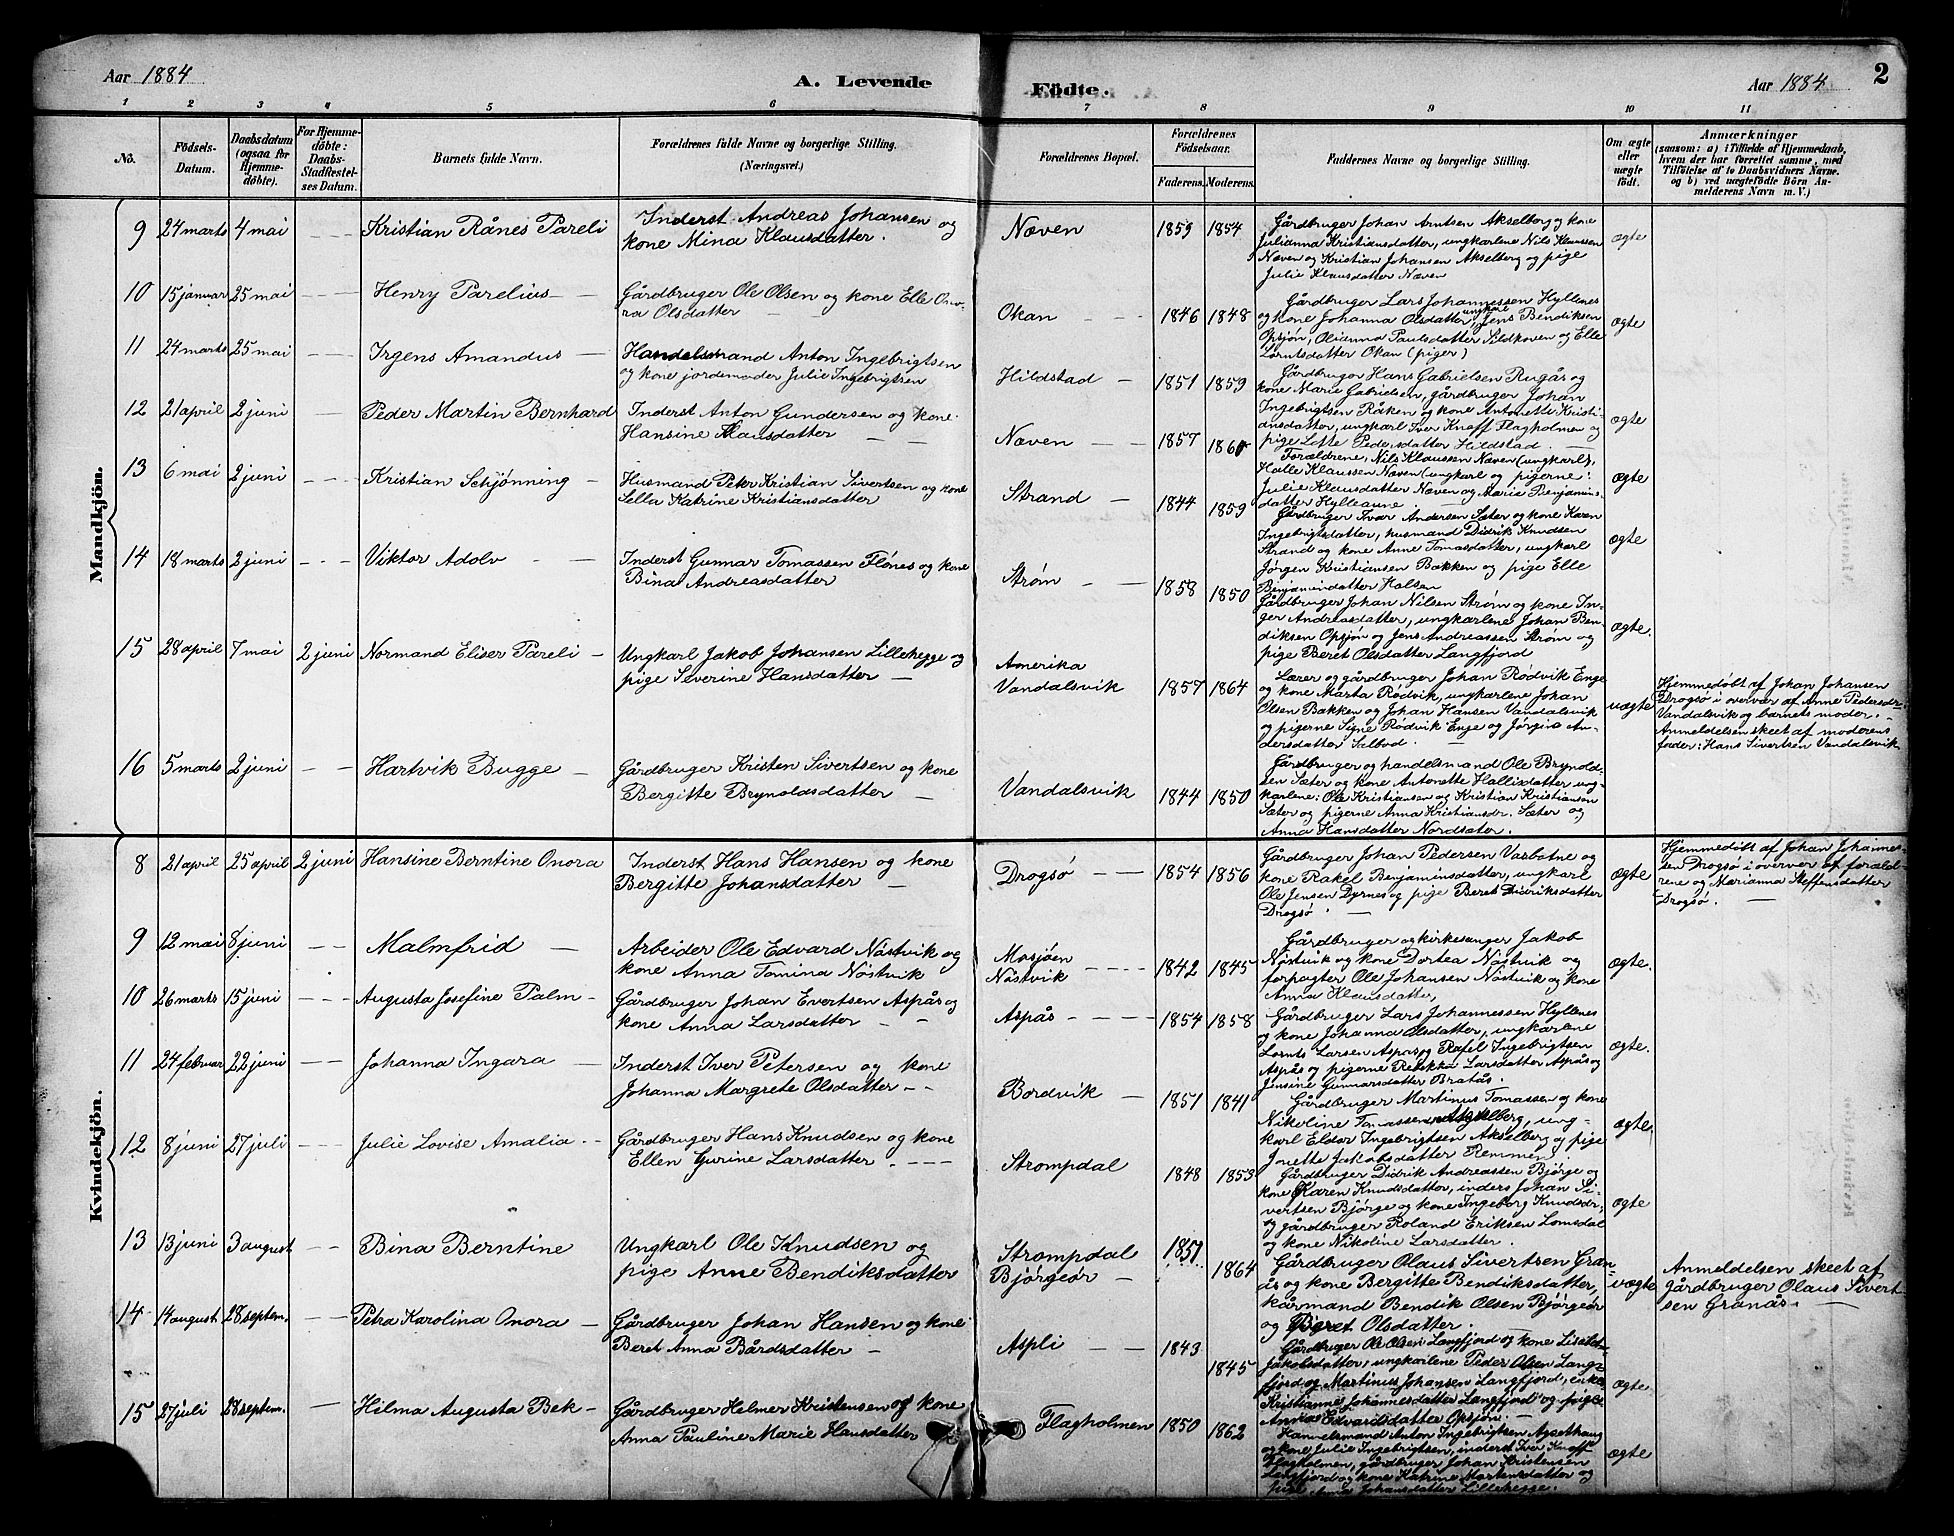 Aar 1884
A. Levende
Födte.
Aar 1884
2
1 2 3 4 5 6 7 8 9 10 11
No.
Födsels-Datum.
Daabsdatum (ogsaa for Hjemme-döbte).
For Hjemme-döbte: Daabs-Stadfæstel-ses Datum.
Barnets fulde Navn.
Forældrenes fulde Navne og borgerlige Stilling.
(Næringsvei.)
Forældrenes Bopæl.
Forældrenes Födselsaar.
Faderens. Moderens.
Faddernes Navne og borgerlige Stilling.
Om ægte eller uægte født.
Anmærkninger
(saasom: a) i Tilfælde af Hjemmedaab,
hvem der har forrettet samme, med
Tilföielse af to Daabsvidners Navne.
og b) ved uægtefödte Börn An-
melderens Navn m. V.)
Mandkjön.
9 24 marts 4 mai Kristian Rånes Pareli
Inderst Andreas Johansen og
kone Mina Klausdatter.
Næven 1859 1854
Gårdbruger Johan Arntsen Akselberg og kone
Julianna Kristiansdatter, ungkarlene Nils Klaussen
Næven og Kristian Johansen Akselberg og pige
Julie Klausdatter Næven
ægte
10 15 januar 25 mai Henry Parelius
Gårdbruger Ole Olsen og kone Elle Ono-
ra Olsdatter
Okan 1846 1848
Gårdbruger Lars Johannessen Hyllenes
og kone Johanna Olsdatter, ungkarl Jens Bendiksen
Opsjøn, Olianna Paulsdatter Sildkoven og Elle
Lorntsdatter Okan (piger)
ægte
11 24 marts 25 mai Irgens Amandus
Handelsmand Anton Ingebrigtsen
og kone jordemoder Julie Ingebrigtsen
Hildstad 1851 1859
Gårdbruger Hans Gabrielsen Rugås og
kone Marie Gabrielsen, gårdbruger Johan
Ingebrigtsen Råken og kone Antonette Kristi-
ansdatter, ungkarl Iver Knoff Flagholmen og
pige Lotte Pedersdatter Hildstad.
ægte
12 21 april 2 juni Peder Martin Bernhard
Inderst Anton Gundersen og kone
Hansine Klausdatter
Næven 1857 1861
Forældrene, Nils Klaussen Næven (ungkarl),
Halle Klaussen Næven (ungkarl og pigerne:
Julie Klausdatter Næven og Maria Benjamins-
datter Hylleaune
ægte
13 6 mai 2 juni Kristian Schjønning
Husmand Peter Kristian Sivertsen og kone
Sella Katrine Kristiansdatter
Strand 1844 1859
Gårdbruger Ivar Andersen Sæter og kone Karen
Ingebrigtsdatter, husmand Didrik Knudsen
Strand og kone Anne Tomasdatter, ungkarl
Jörgen Kristiansen Bakken og pige Elle
Benjaminsdatter Holsen
ægte
14 18 marts 2 juni Viktor Adolv
Inderst Gunnar Tomassen Flönes og kone
Bina Andreasdatter
Strøm 1858 1850
Gårdbruger Johan Nilsen Strøm og kone In-
ger Andreasdatter, ungkarlene Johan Ben-
diksen Opsjøn og Jens Andreassen Strøm og
pige Beret Olsdatter Langfjord
ægte.
15 28 april 7 mai 2 juni Normand Eliser Pareli
Ungkarl Jakob Johansen Lillehegge og
pige Severine Hansdatter
Amerika
Vandalsvik 1857 1864
Lærer og gårdbruger Johan Rødvik Enge
og kone Marta Rødvik, ungkarlene Johan
Olsen Bakken og Johan Hansen Vandalsvik
og pigerne Signe Rødvik Enge og Jørgine An-
dersdatter Salbod.
uægte
Hjemmedøbt af Johan Johansen
Drogsø i overvær af Anne Pedersdr.
Vandalsvik og barnets moder.
Anmeldelsen skeet af moderens
fader: Hans Sivertsen Vandalsvik
16 5 marts 2 juni Hartvik Bugge
Gårdbruger Kristen Sivertsen og kone
Bergitte Brynoldsdatter
Vandalsvik 1844 1850
Gårdbruger og handelsmand Ole Brynold-
sen Sæter og kone Antonette Hallisdatter ung-
karlene: Ole Kristiansen og Kristian Kristiansen
Sæter og pigerne Anna Kristiansdr. Sæter og
Anna Hansdatter Nordsæter.
Kvindekjön.
8 21 april 25 april 2 juni Hansine Berntine Onora
Inderst Hans Hansen og kone
Bergitte Johansdatter
Drogsø 1854 1856
Gårdbruger Johan Pedersen Vasbotne og
kone Rakel Benjaminsdatter, ungkarl
Ole Jensen Dyrnes og pige Beret Didriksdatter
Drogsø.
ægte
Hjemmedøbt af Johan Johannes-
sen Drogsø i overvær af foræld-
rene og Marianna Steffensdatter
Drogsø.
9 12 mai 8 juni Malmfrid
Arbeider Ole Edvard Nöstvik og
kone Anna Tomina Nöstvik
Mosjøen
Nöstvik 1842 1845
Gårdbruger og kirkesanger Jakob
Nöstvik og kone Dortea Nöstvik og
forpagter Ole Johansen Nöstvik og kone
Anna Klausdatter,
ægte.
10 26 marts 15 juni Augusta Josefine Palm
Gårdbruger Johan Evertsen Aspås og
kone Anna Larsdatter
Aspås 1854 1858
Gårdbruger Lars Johannessen Hyllenes
og kone Johanna Olsdatter, ungkarlene
Lornts Larsen Aspås og Rafel Ingebrigtsen
Aspås og pigerne Rebekka Larsdatter Aspås og
Jensine Gunnarsdatter Bratås.
ægte.
11 24 februar 22 juni Johanna Ingara
Inderst Iver Petersen og kone
Johanna Margrete Olsdatter
Bordvik 1851 1841
Gårdbruger Martinus Tomassen og kone
Nikoline Tomassen Akselberg, ung-
karl Eldor Ingebrigtsen Akselberg og pige
Jonette Jakobsdatter Remmen.
ægte
12 8 juni 27 juli Julie Lovise Amalia
Gårdbruger Hans Knudsen og kone
Ellen Gurine Larsdatter.
Strompdal 1848 1853
Gårdbruger Didrik Andreassen Bjørge og
kone Karen Knudsdatter, inders Johan Si-
vertsen Bjørge og kone Ingeborg Knudsdr,
og gårdbruger Roland Eriksen Lomsdal
og kone Nikoline Larsdatter.
ægte
13 13 juni 3 august Bina Berntine
Ungkarl Ole Knudsen og
pige Anne Bendiksdatter
Strompdal
Bjørgeør 1851 1864
Gårdbruger Olaus Sivertsen Gran-
ås og kone Bergitte Bendiksdatter,
kårmand Bendik Olsen Bjørgeør
og Beret Olsdatter.
uægte
Anmeldelsen skeet af
gårdbruger Olaus Sivert-
sen Granås.
14 14 august 28 septem. Petra Karolina Onora
Gårdbruger Johan Hansen og kone
Beret Anna Bårdsdatter
Aspli 1843 1845
Gårdbruger Ole Olsen Langfjord og kone Lisebet
Jakobsdatter, ungkarlene Peder Olsen Lang-
fjord og Martinus Johansen Langfjord, enke
Kristianne Johannesdatter Langfjord og pige
Edvardsdatter Opsjøn.
ægte.
15 27 juli 28 septem. Hilma Augusta Bek
Gårdbruger Helmer Kristensen og kone
Anna Pauline Marie Hansdatter
Flagholmen 1850 1862
Handelsmand Anton Ingebrigtsen
og kone Julie Ingebrigtsen, inderst Iver Knoff
Flagholmen, gårdbruger Johan Kristensen
Langfjord og kone Katrine Martensdatter og
pige Anna Johansdatter Lillehegge.
ægte